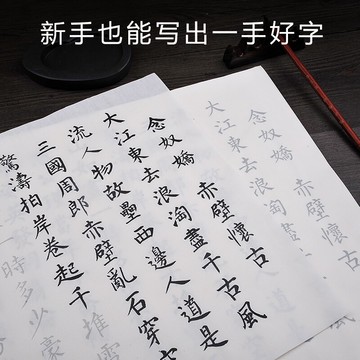 新手也能写出一手好字
念奴嬌 赤壁懷古
大江東去浪淘盡
念奴嬌 赤壁懷古
大江東去浪淘盡千古風
流人物故壘西邊人道是
三國周郎赤壁亂石穿
驚濤拍岸卷起千堆雪
時多少豪